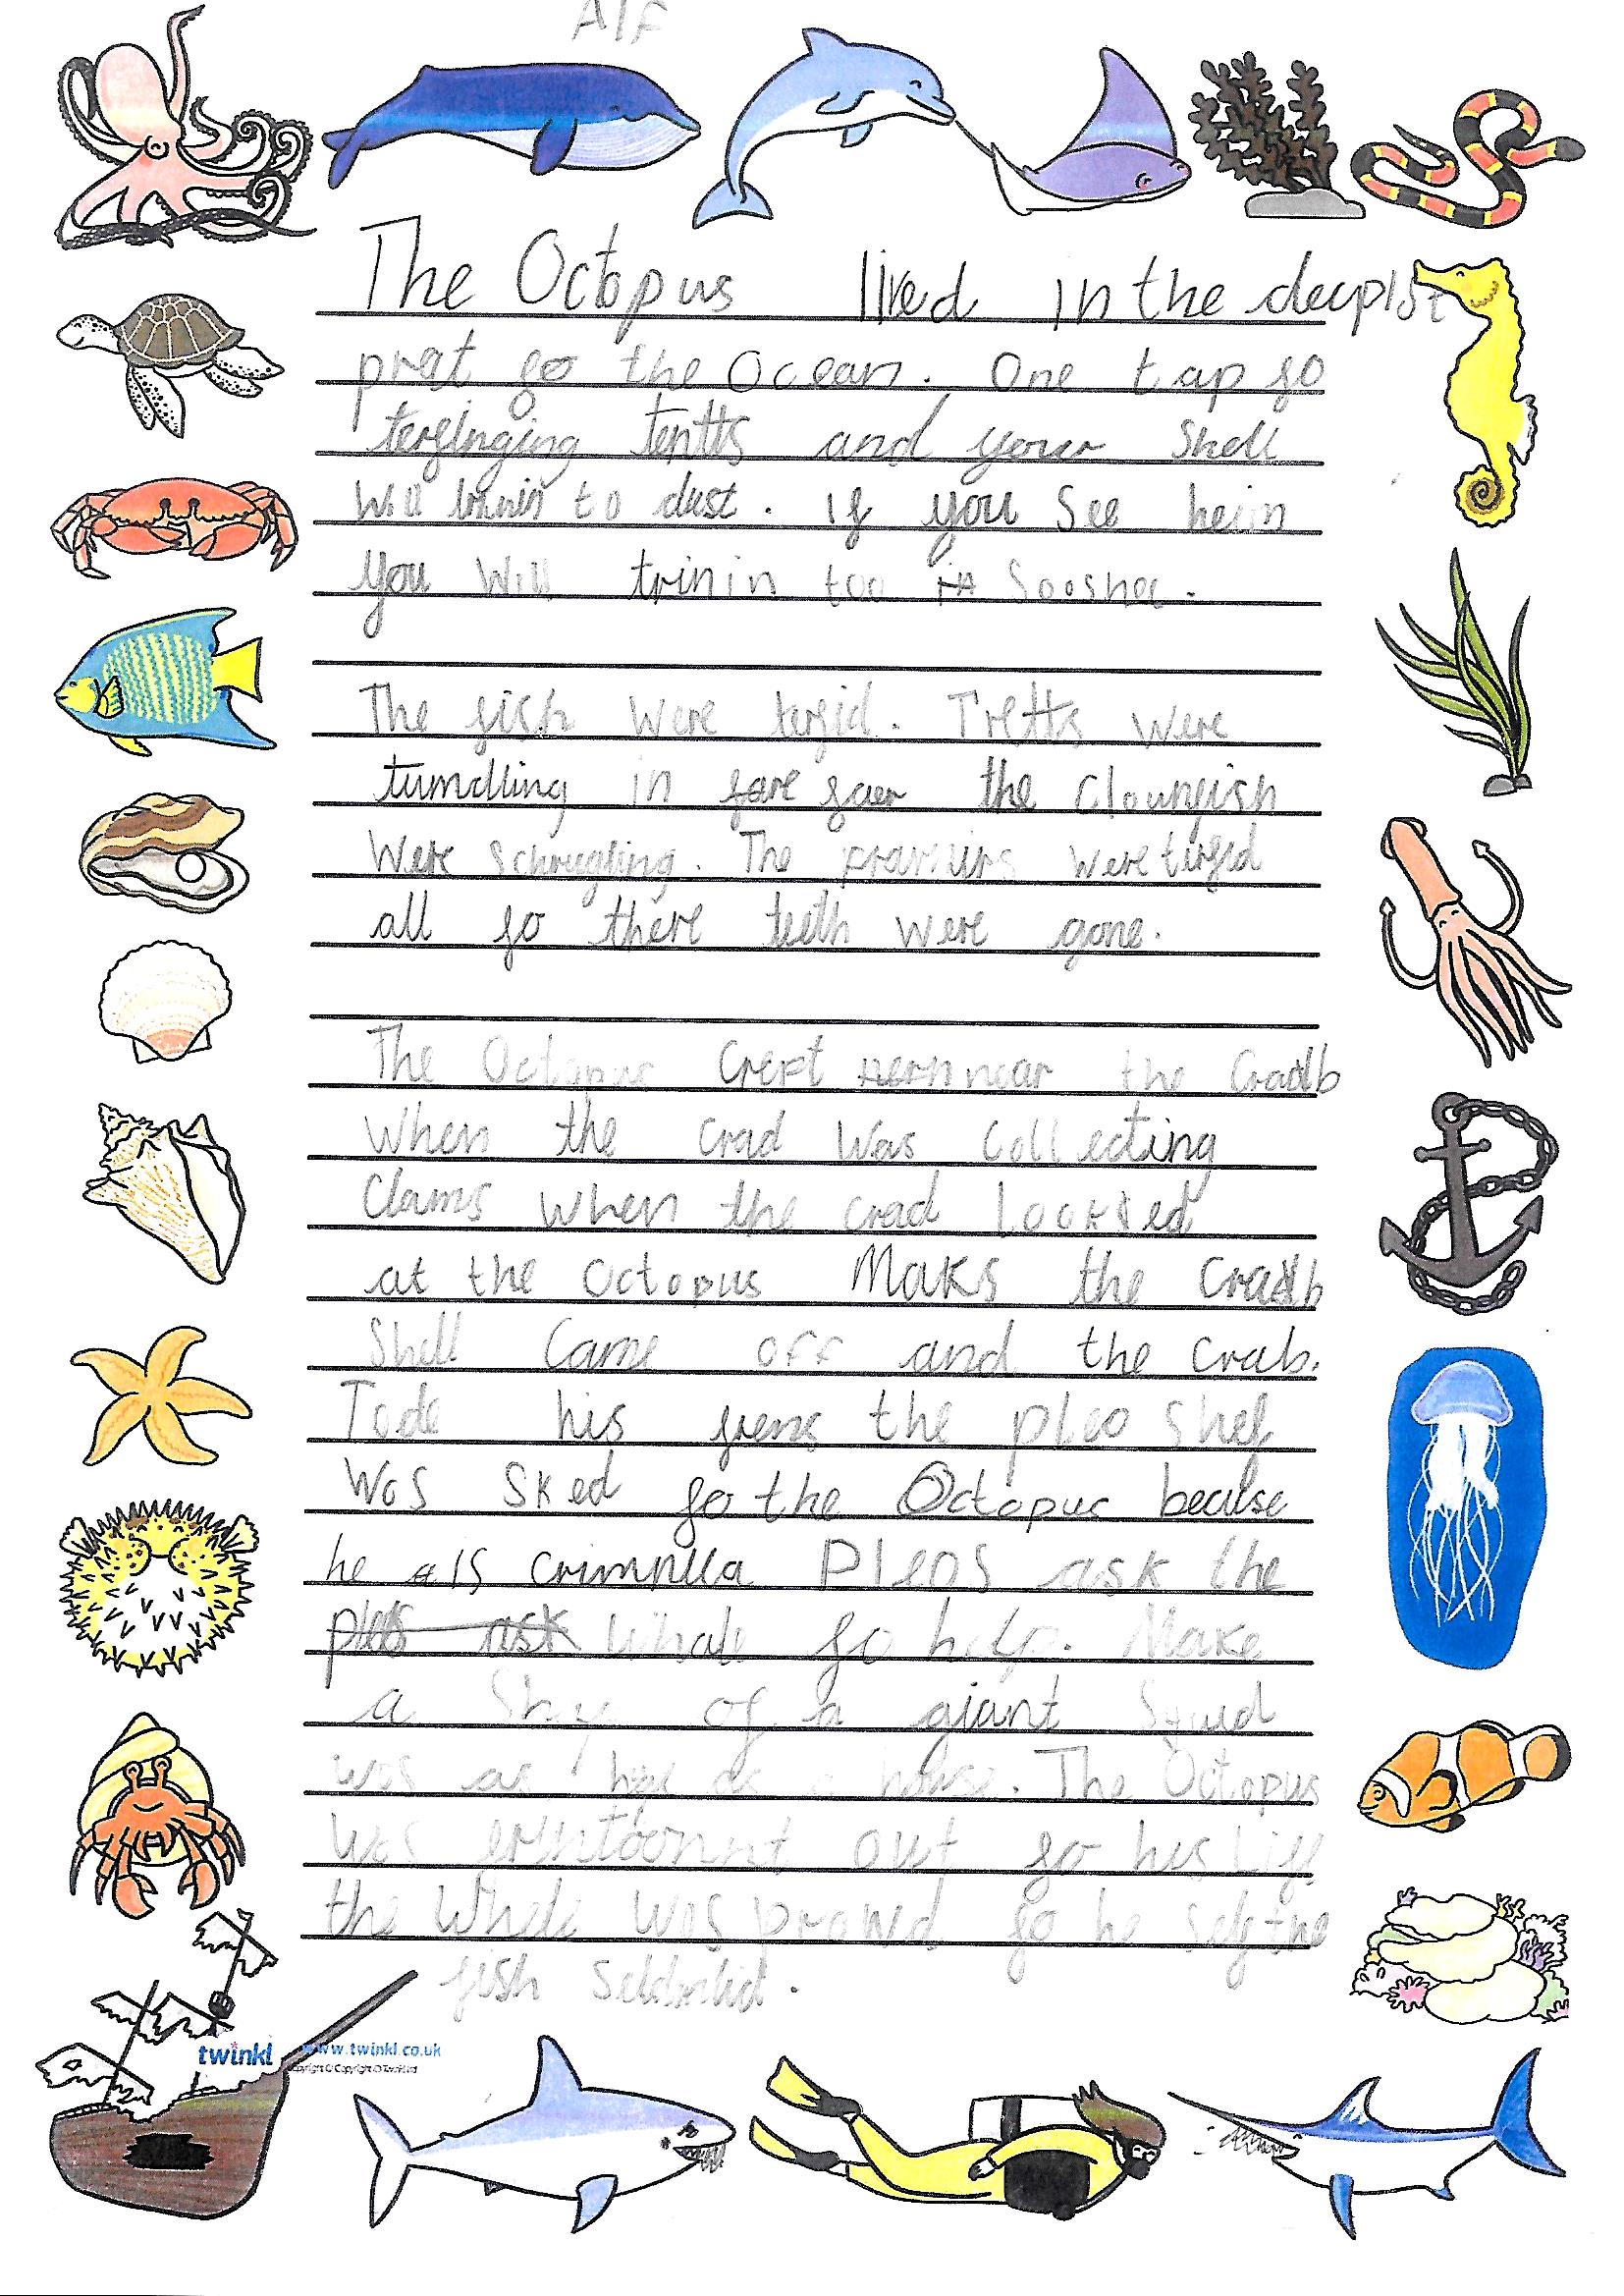 Alf
The Octopus lived in the deeplist
prat fo the Ocean. One tap fo
terfinging tentts and your Shell
Will to dust. If you See heim
you Will trinin too Sooshee.
The fish were terfid. Tretts were
tumdling in fare faer the Clounfish
Were Schrugling. The were terfid
all fo there teeth were gone.
The Octopus Crept near the Cradb
When the crad was Collecting
Clams when the crad lookted
at the Octopus Maks the Cradb
Shell Came off and the Crab.
Tode his frens the pleo Shef
Was Sked fo the Octopus beaulse
he is Crimnlla Plens ask the
ples ask Whale fo help. Make
a of a giant Squid
was as as a house. The Octopus
was out fo his Lif
the Whale Was prowd fo he the
fish
twinkl www.twinkl.co.uk